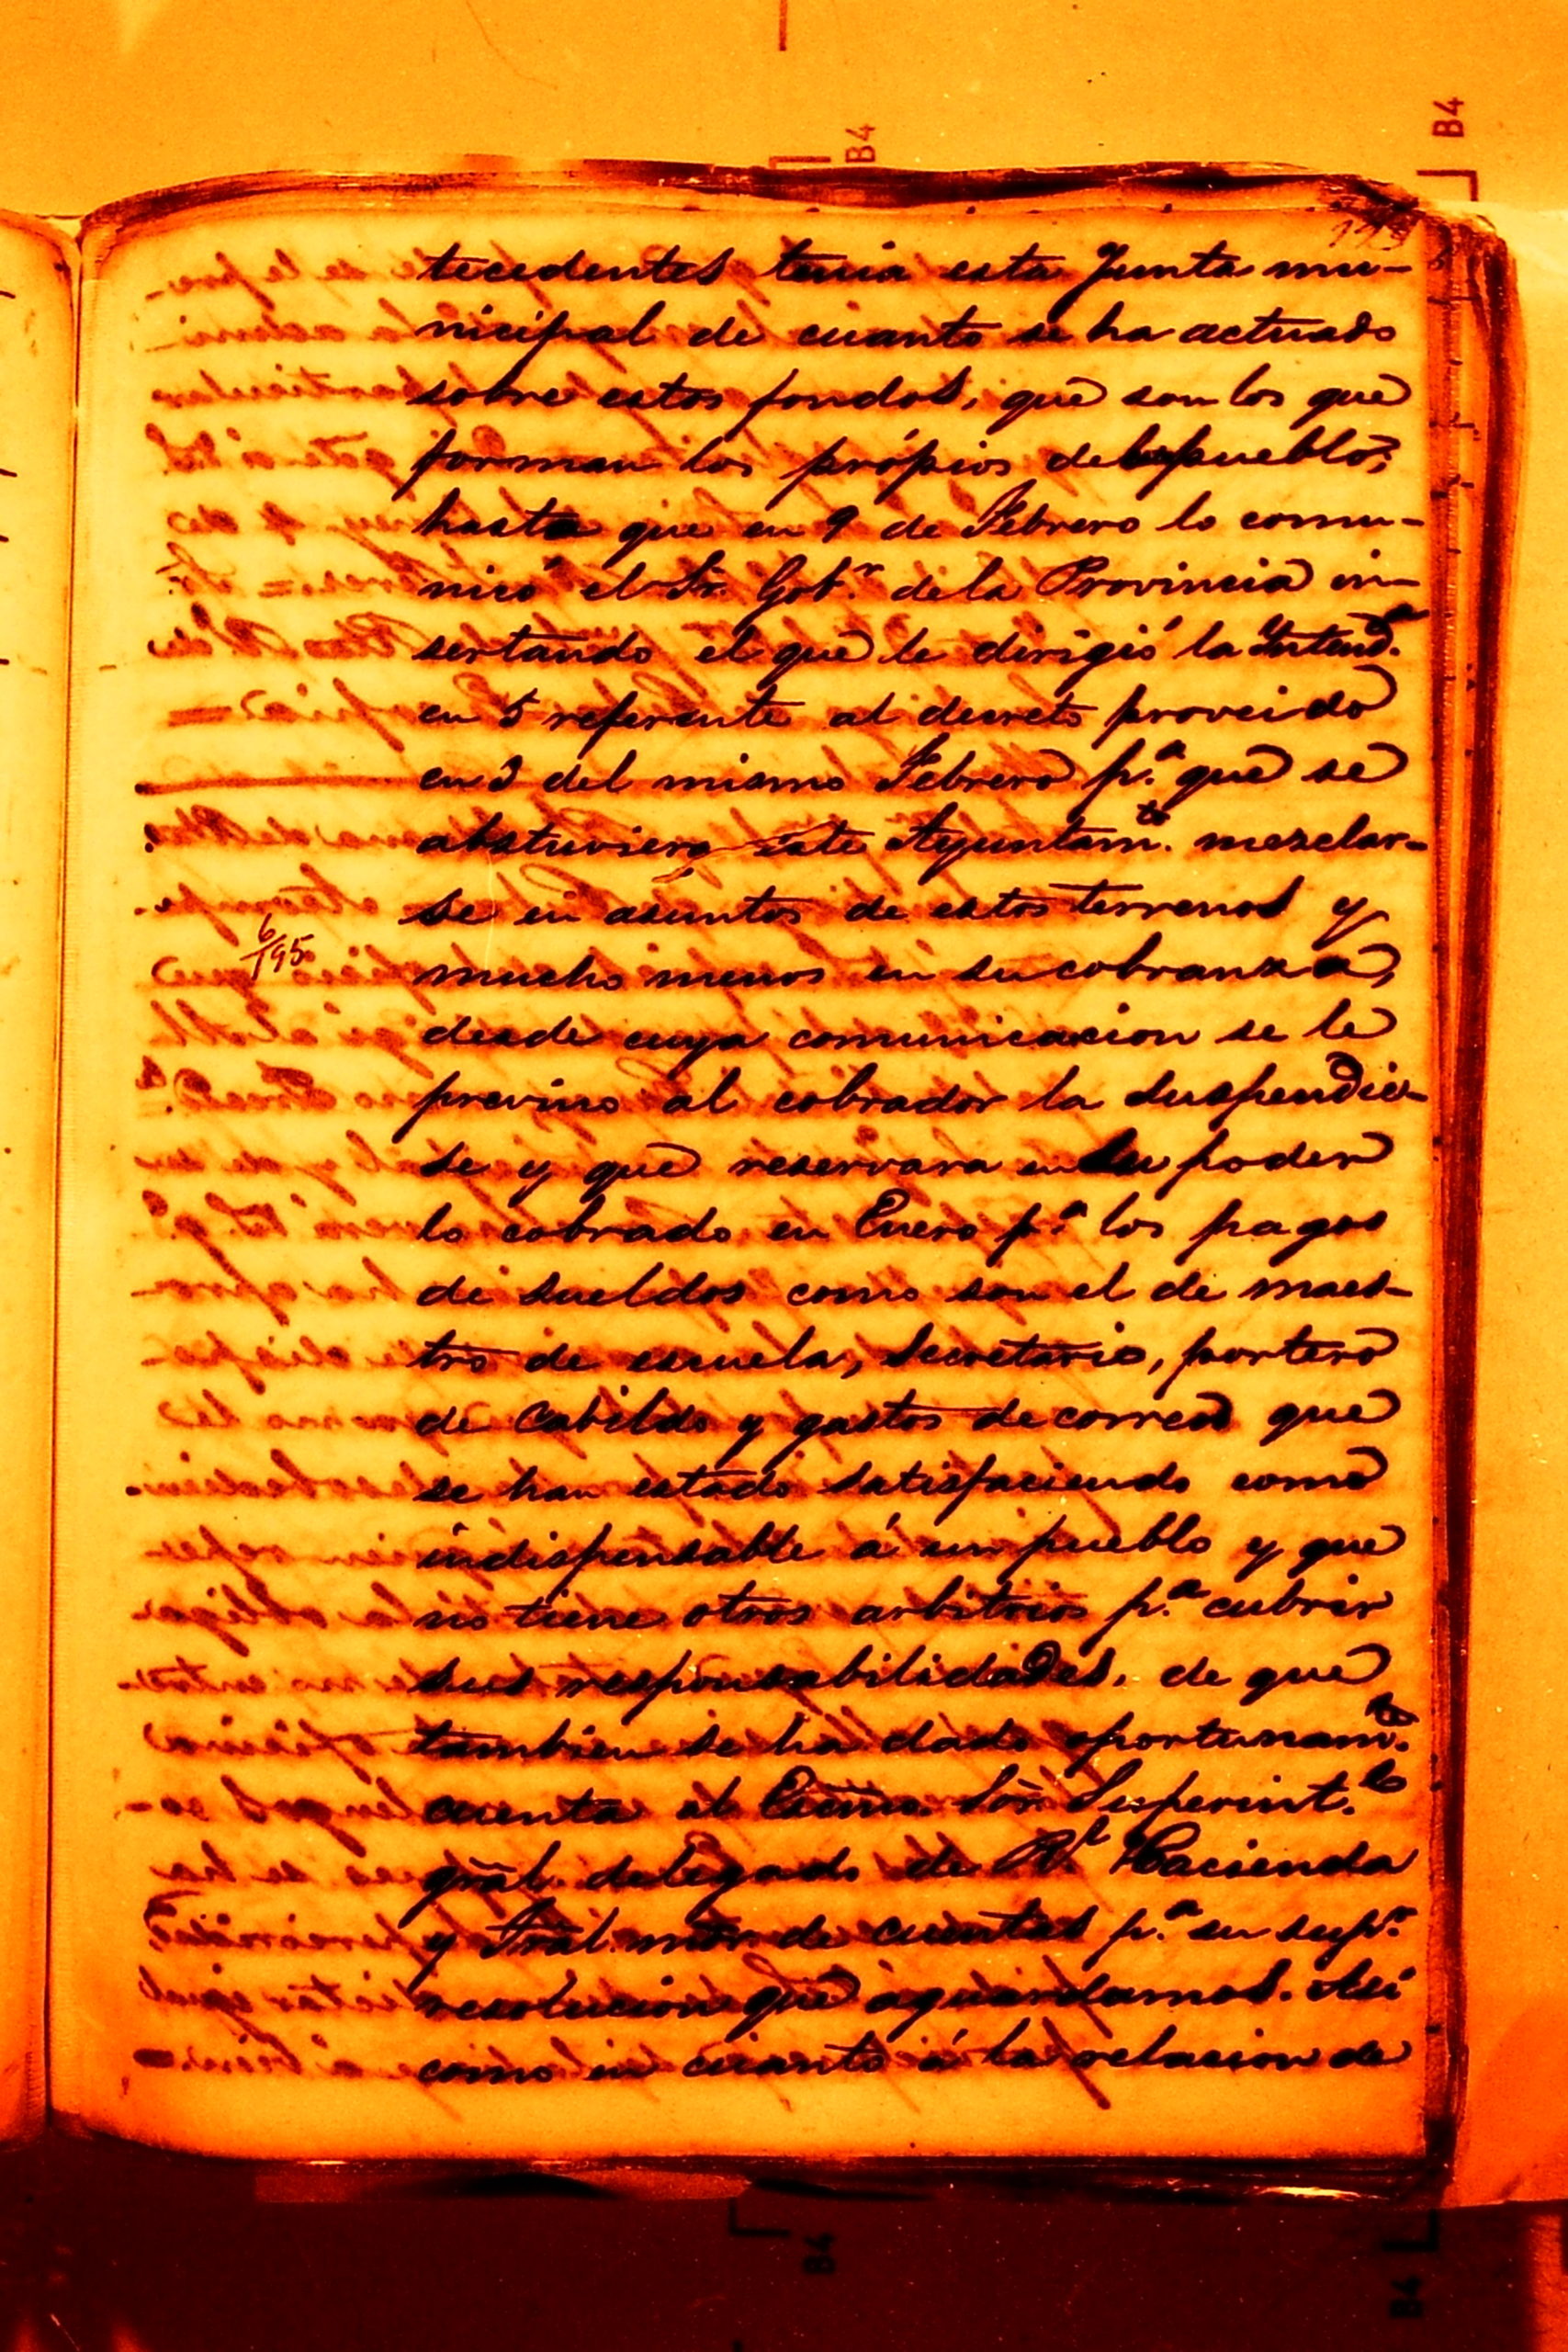 B4
B4
tecedentes tenia esta Junta mu-
nicipal de cuanto se ha actuado
sobre estos fondos, que son los que
forman los própios de los pueblos,
hasta que en 9 de Febrero lo comu-
nicó el Sr. Gobr. de la Provincia in-
sertando el que le dirigió la Intend.a
en 5 referente al decreto proveido
en 3 del mismo Febrero p.a que se
abstuviera este Ayuntam.to mezclar-
se en asuntos de estos terrenos y
6/195
mucho menos en su cobranza,
desde cuya comunicacion se le
previno al cobrador la suspendie-
se y que reservara en su poder
lo cobrado en Enero p.a los pagos
de sueldos como son el de maes-
tro de escuela, Secretario, portero
de Cabildo y gastos de correo que
se han estado satisfaciendo como
indispensable á un pueblo y que
no tiene otros arbitrios p.a cubrir
sus responsabilidades, de que
tambien se ha dado oportunam.te
cuenta al Exmo. Sõr Superint.te
grãl. delegado de Rl Hacienda
y Trãl. mõr de cuentas p.a su sup.r
resolucion que aguardamos. Asi
como en cuanto á la relacion de
B4
B4